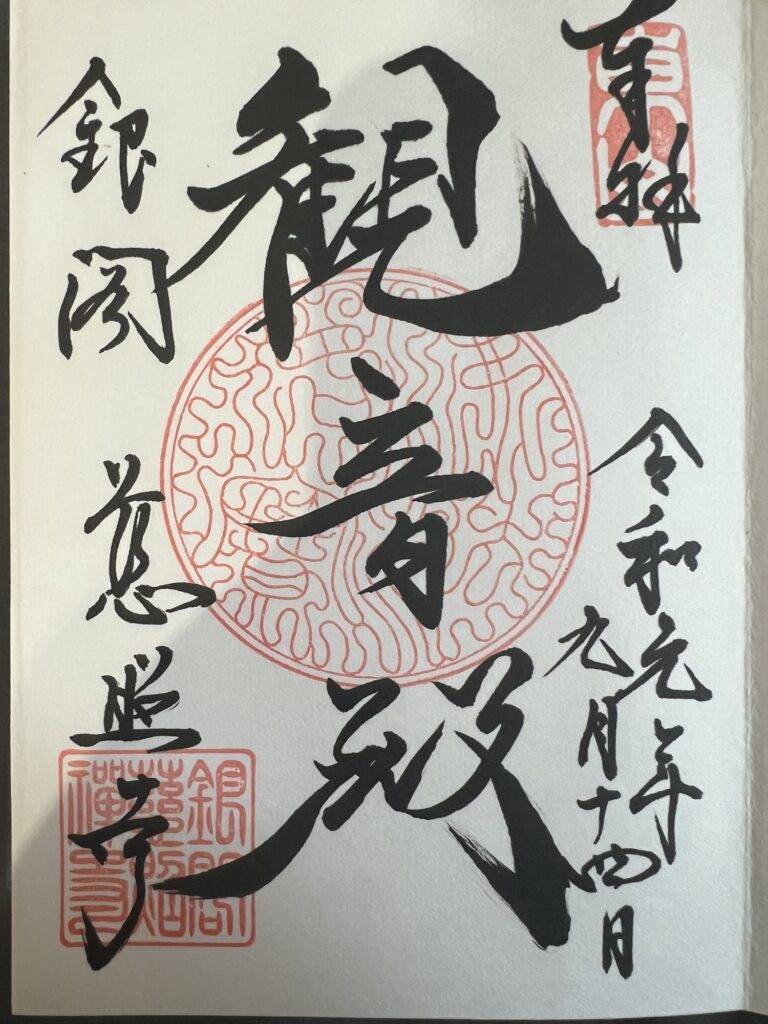 奉拝
令和元年
九月十四日
観音殿
銀閣 慈照寺
銀閣
慈照
禅寺